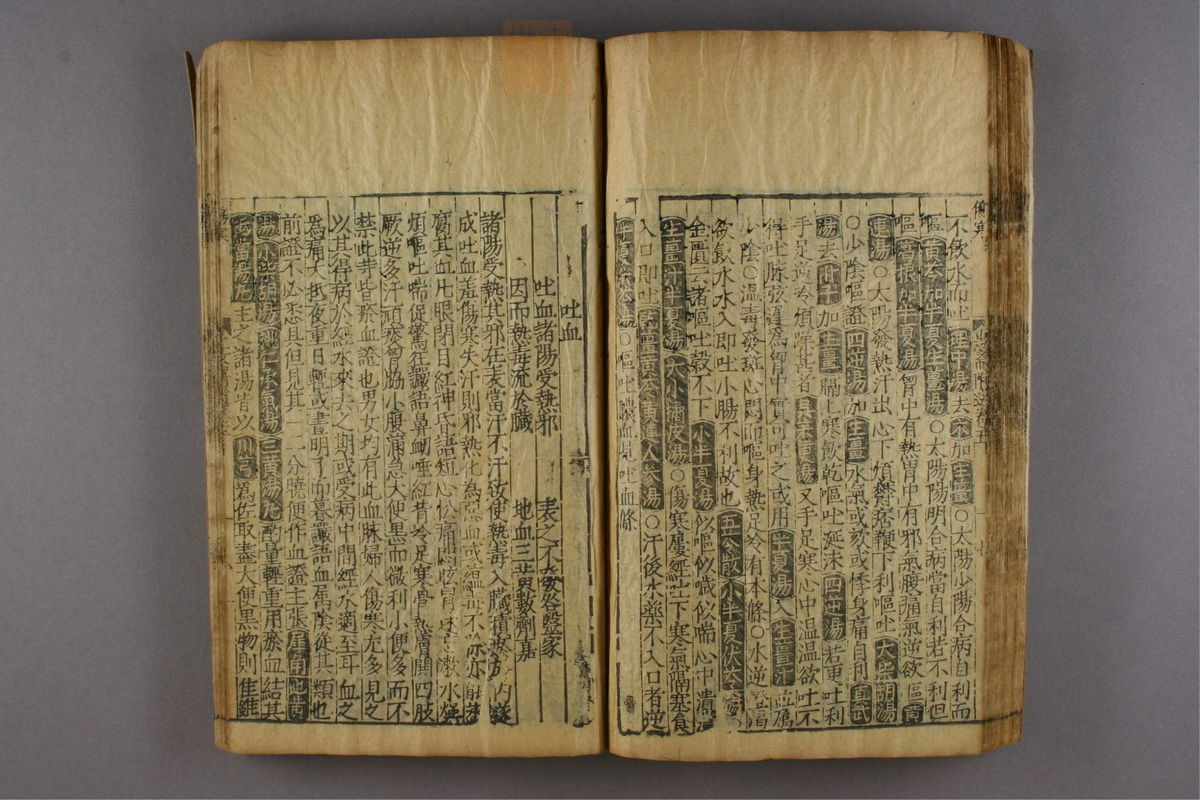 不飲水而吐理中湯去朮加生薑○太陽少陽合病自利而
嘔黃芩加半夏生薑湯○太陽陽明合病當自利若不利但
嘔葛根加半夏湯胷中有熱胃中有邪氣腹痛氣逆欲嘔黃
連湯○太陽發熱汗出心下煩痞鞕下利嘔吐大柴胡湯
○少陰嘔證四逆湯加生薑水氣或欬或悸身痛自利真武
湯去附子加生薑膈上寒飲乾嘔吐涎沫四逆湯若更吐利
手足逆冷煩躁甚者吳茱萸湯又手足寒心中溫溫欲吐不
得吐脉弦遲為胷中實可吐之或用半夏湯入生薑汁並屬
少陰○溫毒發斑心悶而嘔身熱足冷有本條○水逆證渴
欲飲水水入即吐小腸不利故也五苓散小半夏茯苓湯
金匱云諸嘔吐穀不下小半夏湯似嘔似噦似喘心中潰潰
生薑汁半夏湯大小橘皮湯○傷寒屢經吐下寒氣隔塞食
入口即吐乾薑黃芩黃連人參湯○汗後水藥不入口者逆
半夏茯苓湯○嘔吐膿血見吐血條
吐血
吐血諸陽受熱邪
表之不發各醫家
因而熱毒流於臟
地血三黃數劑嘉
諸陽受熱其邪在表當汗不汗致使熱毒入臟積瘀於內遂
成吐血羞傷寒失汗則邪熱化為惡血或溫毒不亦能
復其血上眼閉目紅神昏語短心忪痛眩冒迷漱水燥
煩嘔吐喘促驚狂讝語鼻衂唾紅背冷足寒骨熱膚四肢
厥逆多汗頑痰胷脇小腹滿急大便黑而微利小便多而不
禁此等皆瘀血證也男女均有此血脉婦人傷寒尤多見之
以其得病於經水來去之期或受病中間經水適至耳血之
為痛大抵夜重日輕或晝明了而暮讝語血屬陰從其類也
前證不必悉具但見其一二分曉便作血證主張犀角地黃
湯小柴胡湯桃仁承氣湯三黃湯丸酌量輕重用瘀血結其
抵當湯丸主之諸湯皆以川芎為佐取盡大便黑物則佳雖